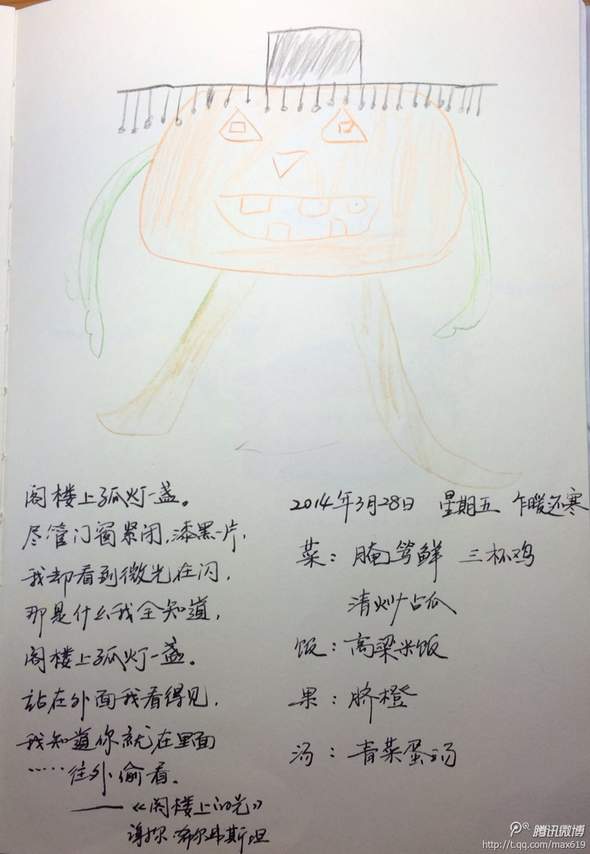 阁楼上孤灯一盏。
尽管门窗紧闭,漆黑一片,
我却看到微光在闪,
那是什么我全知道,
阁楼上孤灯一盏。
站在外面我看得见,
我知道你就在里面
……往外偷看。
——《阁楼上的光》
谢尔·希尔弗斯坦
2014年3月28日 星期五 乍暖还寒
菜:腌笃鲜 三杯鸡
清炒占瓜
饭:高粱米饭
果:脐橙
汤:青菜蛋汤
腾讯微博
http://t.qq.com/max619